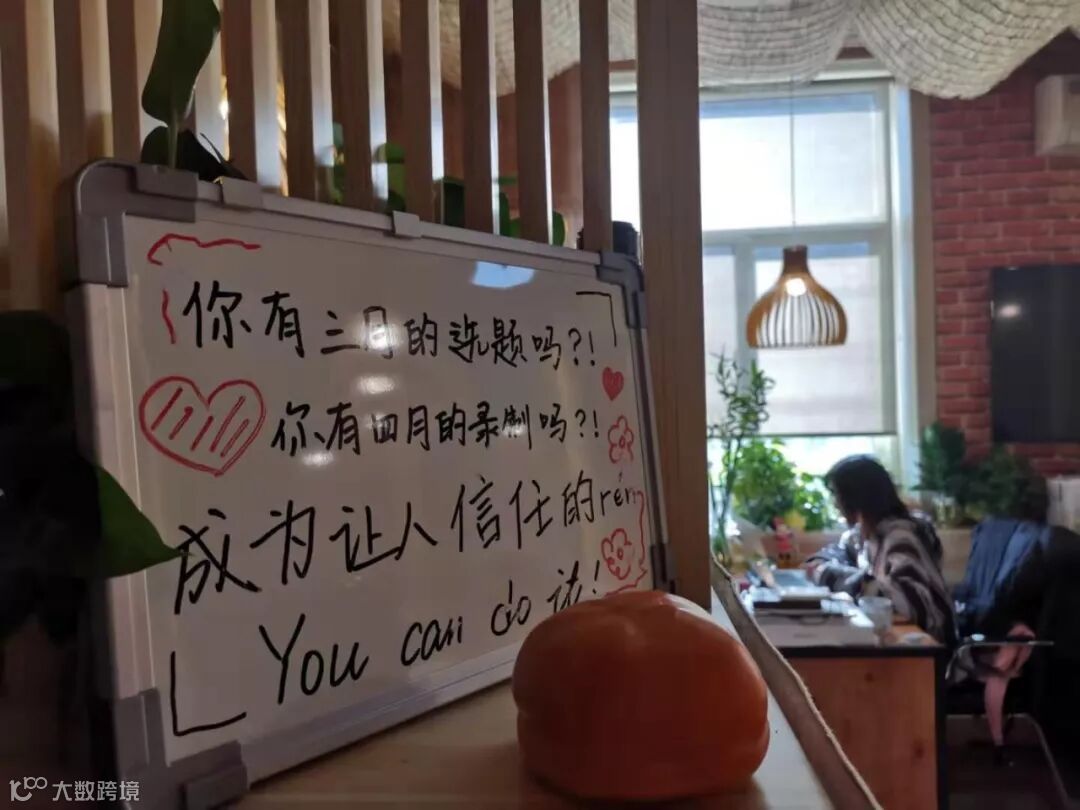 你有三月的选题吗?!
你有四月的录制吗?!
成为让人信任的rén
You can do it!
大数跨境